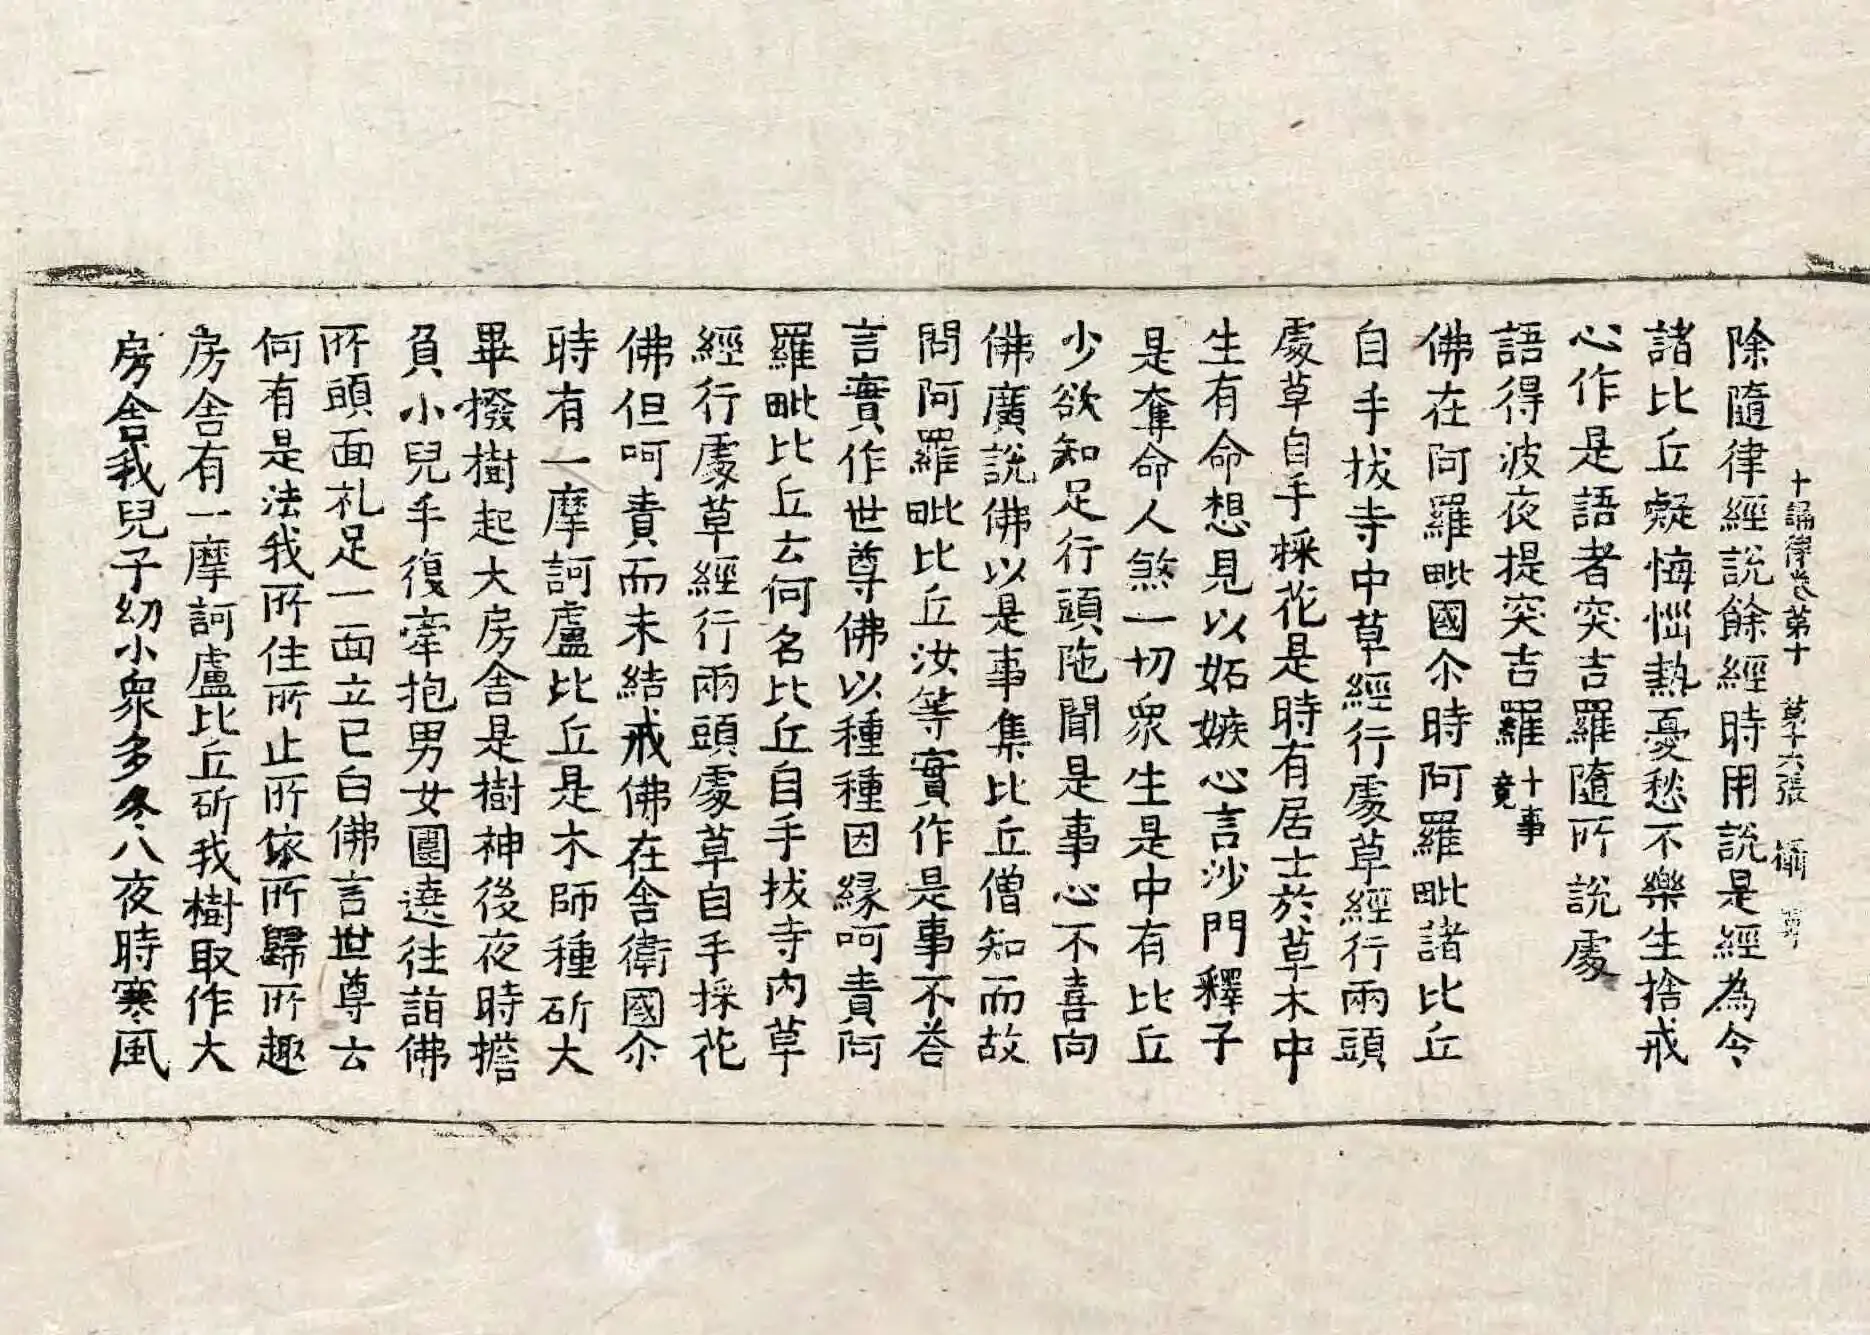 十誦律卷第十 第十六張 攝
除隨律經說餘經時用說是經為令
諸比丘疑悔惱熱憂愁不樂生捨戒
心作是語者突吉羅隨所說處
語得波夜提突吉羅十事竟
佛在阿羅毗國尒時阿羅毗諸比丘
自手拔寺中草經行處草經行兩頭
處草自手採花是時有居士於草木中
生有命想見以妬嫉心言沙門釋子
是奪命人煞一切衆生是中有比丘
少欲知足行頭陁聞是事心不喜向
佛廣說佛以是事集比丘僧知而故
問阿羅毗比丘汝等實作是事不荅
言實作世尊佛以種種因縁呵責阿
羅毗比丘云何名比丘自手拔寺內草
經行處草經行兩頭處草自手採花
佛但呵責而未結戒佛在舍衛國尒
時有一摩訶盧比丘是木師種斫大
畢撥樹起大房舍是樹神後夜時擔
負小兒手復牽抱男女圍遶往詣佛
所頭面礼足一面立已白佛言世尊云
何有是法我所住所止所依所歸所趣
房舍有一摩訶盧比丘斫我樹取作大
房舍我兒子幼小衆多冬八夜時寒風